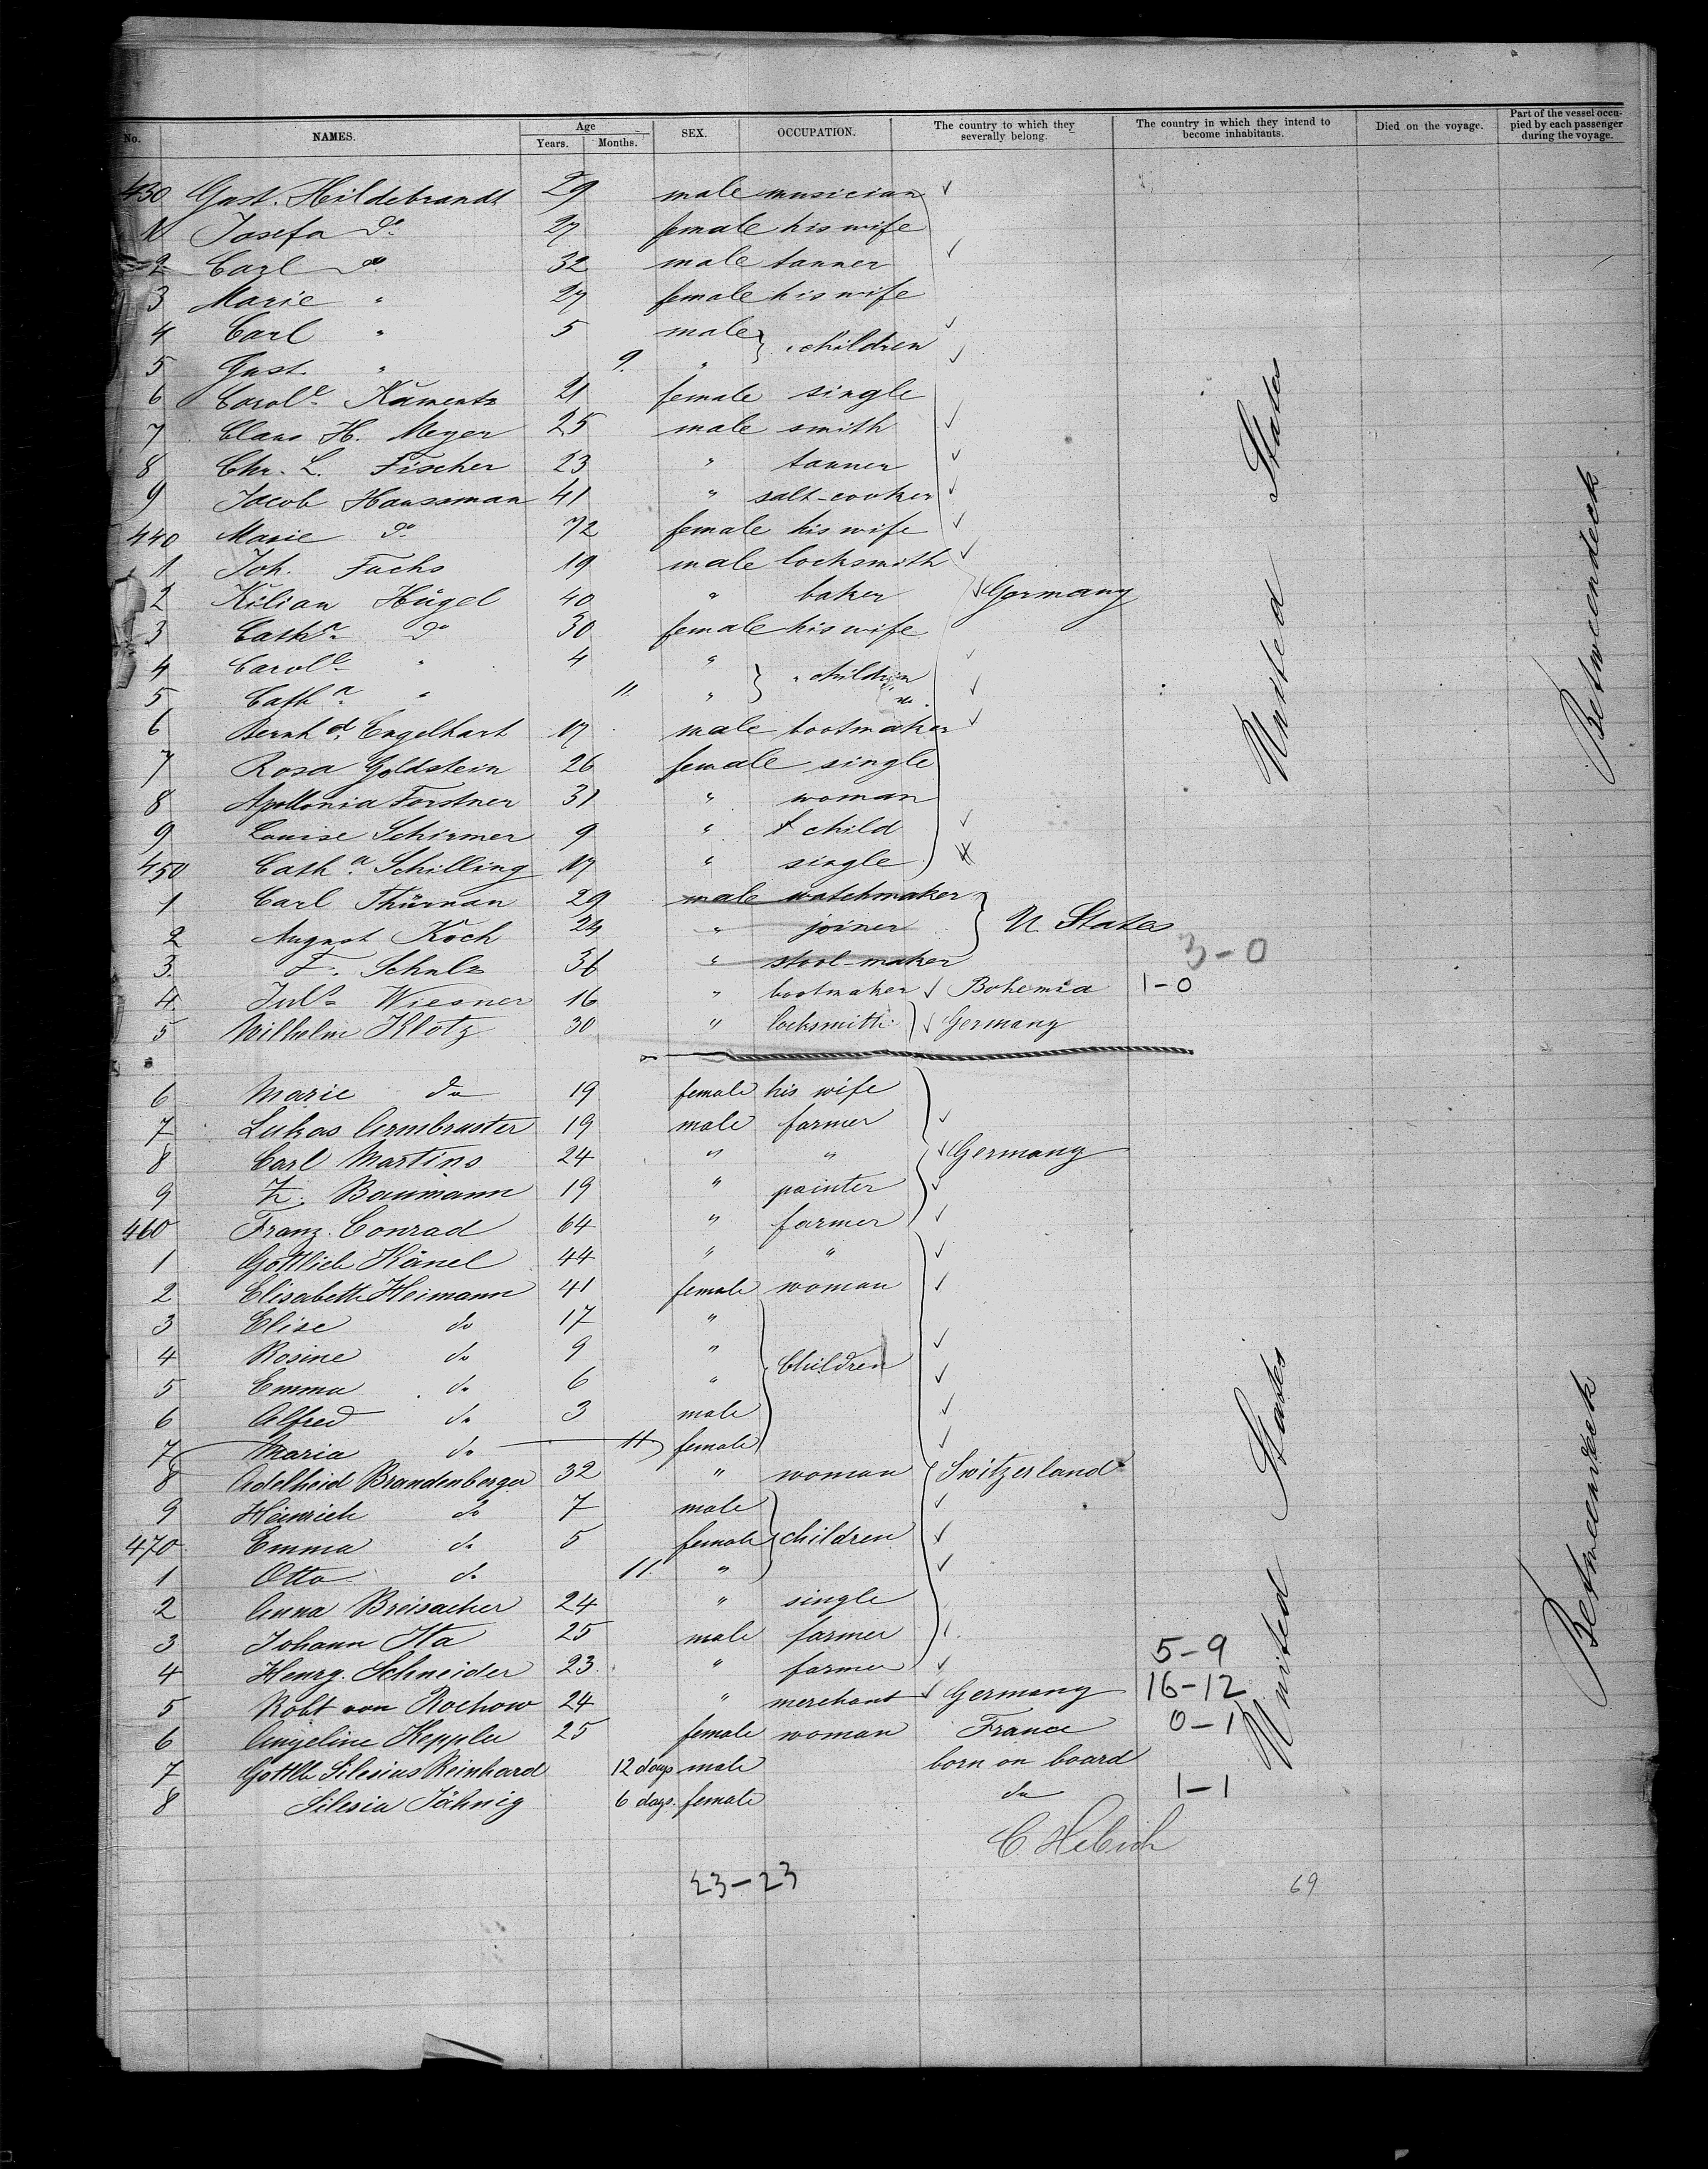 No. NAMES. Age Years. Months. SEX. OCCUPATION. The country to which they severally belong. The country in which they intend to become inhabitants. Died on the voyage. Part of the vessel occupied by each passenger during the voyage.
430 Gust. Hildebrandt 29 male musician ✓
1 Josefa do 27 female his wife
2 Carl do 32 male tanner ✓
3 Marie " 27 female his wife
4 Carl " 5 male } children ✓
5 Gust. " 9. " ✓
6 Carole. Kamentz 21 female single
7 Claus H. Meyer 25 male smith ✓
8 Chr. L. Fischer 23 " tanner ✓
9 Jacob Haussman 41 " salt-cooker ✓
440 Marie do 72 female his wife ✓
1 Joh. Fuchs 19 male locksmith ✓
2 Kilian Hügel 40 " baker ✓ Germany
3 Catha. do 30 female his wife
4 Carole. " 4 " } children ✓
5 Catha. " 11. " ✓
6 Bernhd. Engelhart 17 male bootmaker ✓
7 Rosa Goldstein 26 female single
8 Apollonia Forstner 31 " woman
9 Louise Schirmer 9 " child ✓
450 Catha. Schilling 17 " single
1 Carl Thürnan 29 male watchmaker
2 August Koch 24 " joiner } U. States
3. F. Schulz 36 " stool-maker 3-0
4. Juls. Wiesner 16 " bootmaker ✓ Bohemia 1-0
5 Wilhelm Klotz 30 " locksmith } ✓ Germany
United States
Betweendeck
6 Marie do 19 female his wife
7 Lukas Armbruster 19 male farmer ✓
8 Carl Martins 24 " " ✓ Germany
9 Baumann 19 " painter ✓
460 Franz. Conrad 64 " farmer ✓
1 Gottlieb Känel 44 " " ✓
2 Elisabeth Heimann 41 female woman ✓
3 Elise do 17 "
4 Rosine do 9 " Children ✓
5 Emma do 6 " ✓
6 Alfred do 3 male ✓
7 Maria do 11 female ✓
8 Adelheid Brandenberger 32 " woman Switzerland
9 Heinrich do 7 male ✓
470 Emma do 5 female children ✓
1 Otto do 11. " ✓
2 Anna Breisacher 24 " single
3 Johann Ita 25 male farmer ✓ 5-9
4 Henry. Schneider 23. " farmer ✓
5 Robt von Rochow 24 " merchant ✓ Germany 16-12
6 Angeline Keppler 25 female woman France 0-1
7 Gottlb Silesius Reinhard 12 days male born on board
8 Silesia Jähnig 6 days. female do 1-1
United States
Betweendeck
C. Hebich
23-23
69